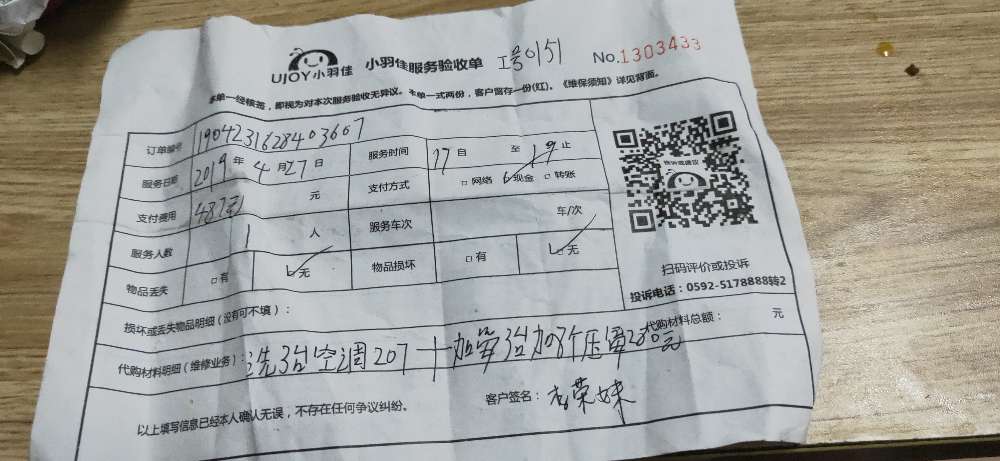 UJOY小羽佳 小羽佳服务验收单 工号0151 No.1303433
本单一经核签，即视为对本次服务验收无异议。本单一式两份，客户留存一份(红)。《维保须知》详见背面。
订单编号 1904231628403607
服务日期 2019年4月27日 服务时间 17自 至19止
支付费用 487元 元 支付方式 网络 现金 转账
服务人数 1人 服务车次 车/次
物品丢失 有 无 物品损坏 有 无
投诉或建议
扫码评价或投诉
投诉电话：0592-5178888转2
损坏或丢失物品明细（没有可不填）：
代购材料明细（维修业务）：洗3台空调207+加第3台加8个压280元 代购材料总额： 元
以上填写信息已经本人确认无误，不存在任何争议纠纷。 客户签名：荣妹